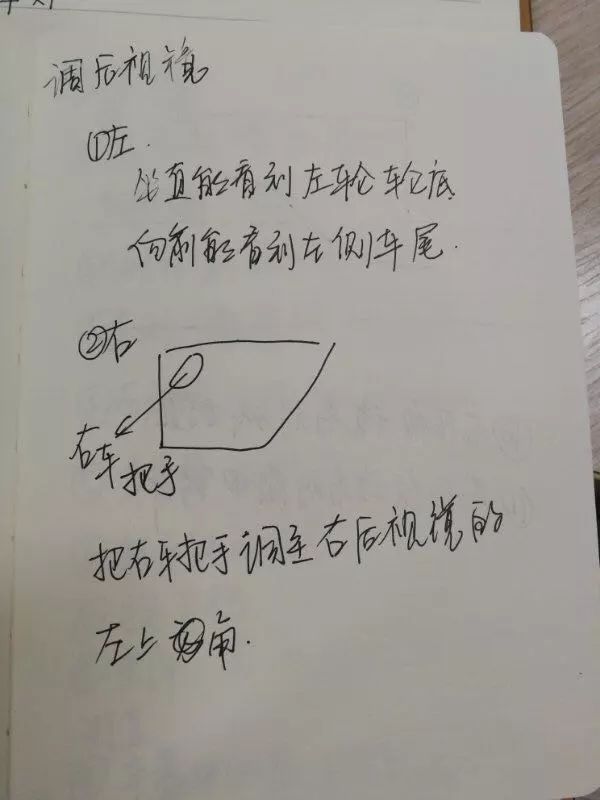 调后视镜
①左.
坐直能看到左轮轮底
向前能看到左侧车尾.
②右
右车把手
把右车把手调至右后视镜的
左上角.